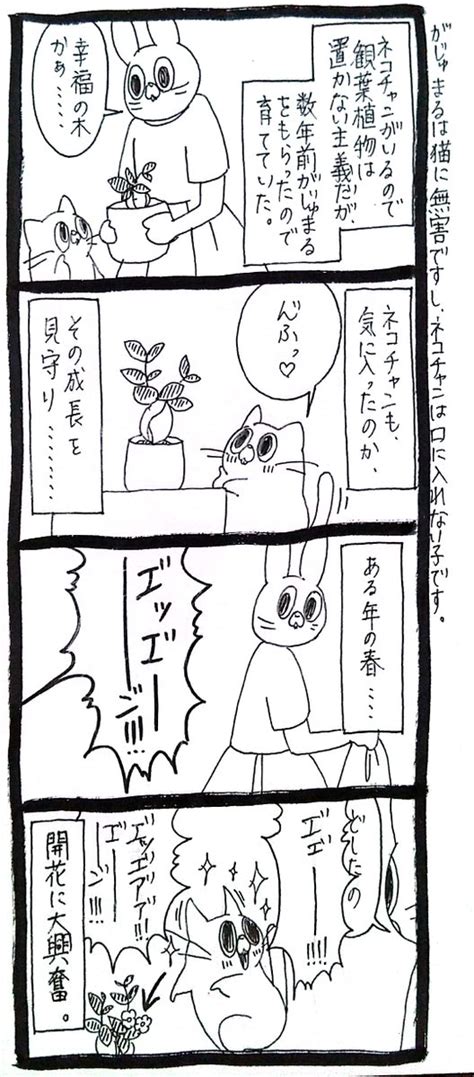 がじゅまるは猫に無害ですし、ネコチャンは口に入れない子です。
ネコチャンがいるので
観葉植物は
置かない主義だが、
数年前がじゅまる
をもらったので
育てていた。
幸福の木
かぁ……
ネコチャンも、
気に入ったのか、
んふっ♡
その成長を
見守り………
ある年の春……
エッエ――ジ!!!
どしたの
エエ――!!!
エッエアア!!
エエ――ジ!!!
開花に大興奮。